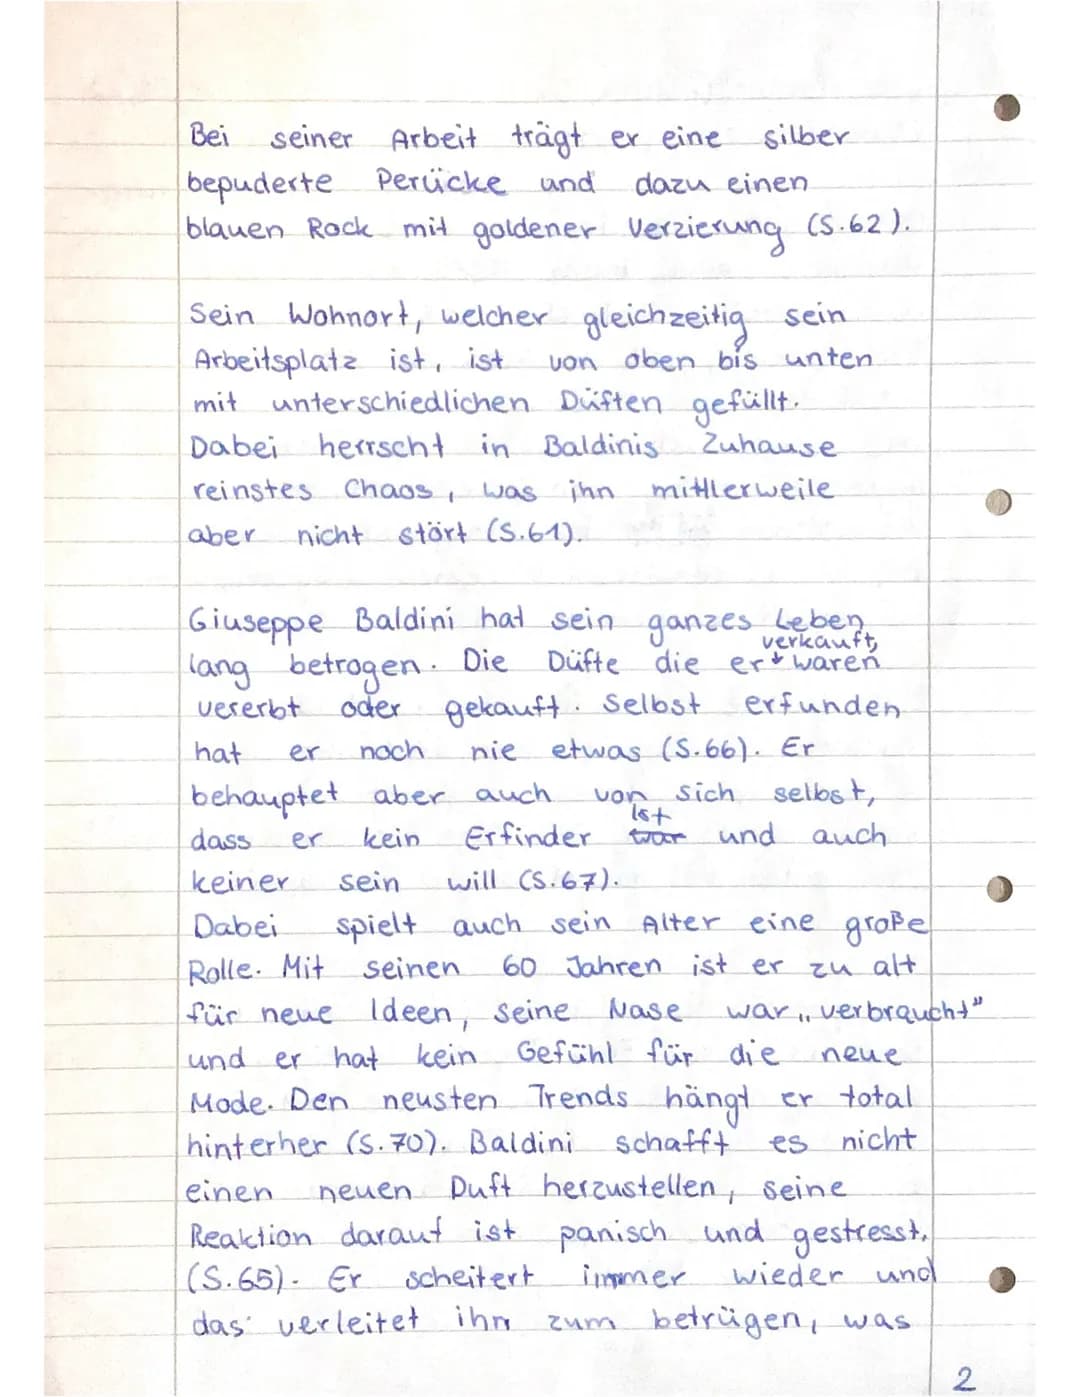 Bei seiner Arbeit trägt er eine silber
bepuderte Perücke und dazu einen
blauen Rock mit goldener Verzierung (S.62).
Sein Wohnort, welcher gleichzeitig sein
Arbeitsplatz ist, ist von oben bis unten
mit unterschiedlichen Düften gefüllt.
Dabei herrscht in Baldinis Zuhause
reinstes Chaos, was ihn mittlerweile
aber nicht stört (S.61).
Giuseppe Baldini hat sein ganzes Leben
lang betrogen. Die Düfte die er verkauft, waren
vererbt oder gekauft. Selbst erfunden
hat er noch nie etwas (S.66). Er
behauptet aber auch von sich selbst,
dass er kein Erfinder ist war und auch
keiner sein will (S.67).
Dabei spielt auch sein Alter eine große
Rolle. Mit seinen 60 Jahren ist er zu alt
für neue Ideen, seine Nase war „verbraucht"
und er hat kein Gefühl für die neue
Mode. Den neusten Trends hängt er total
hinterher (S.70). Baldini schafft es nicht
einen neuen Duft herzustellen, seine
Reaktion darauf ist panisch und gestresst,
(S.65). Er scheitert immer wieder und
das verleitet ihn zum betrügen, was
2